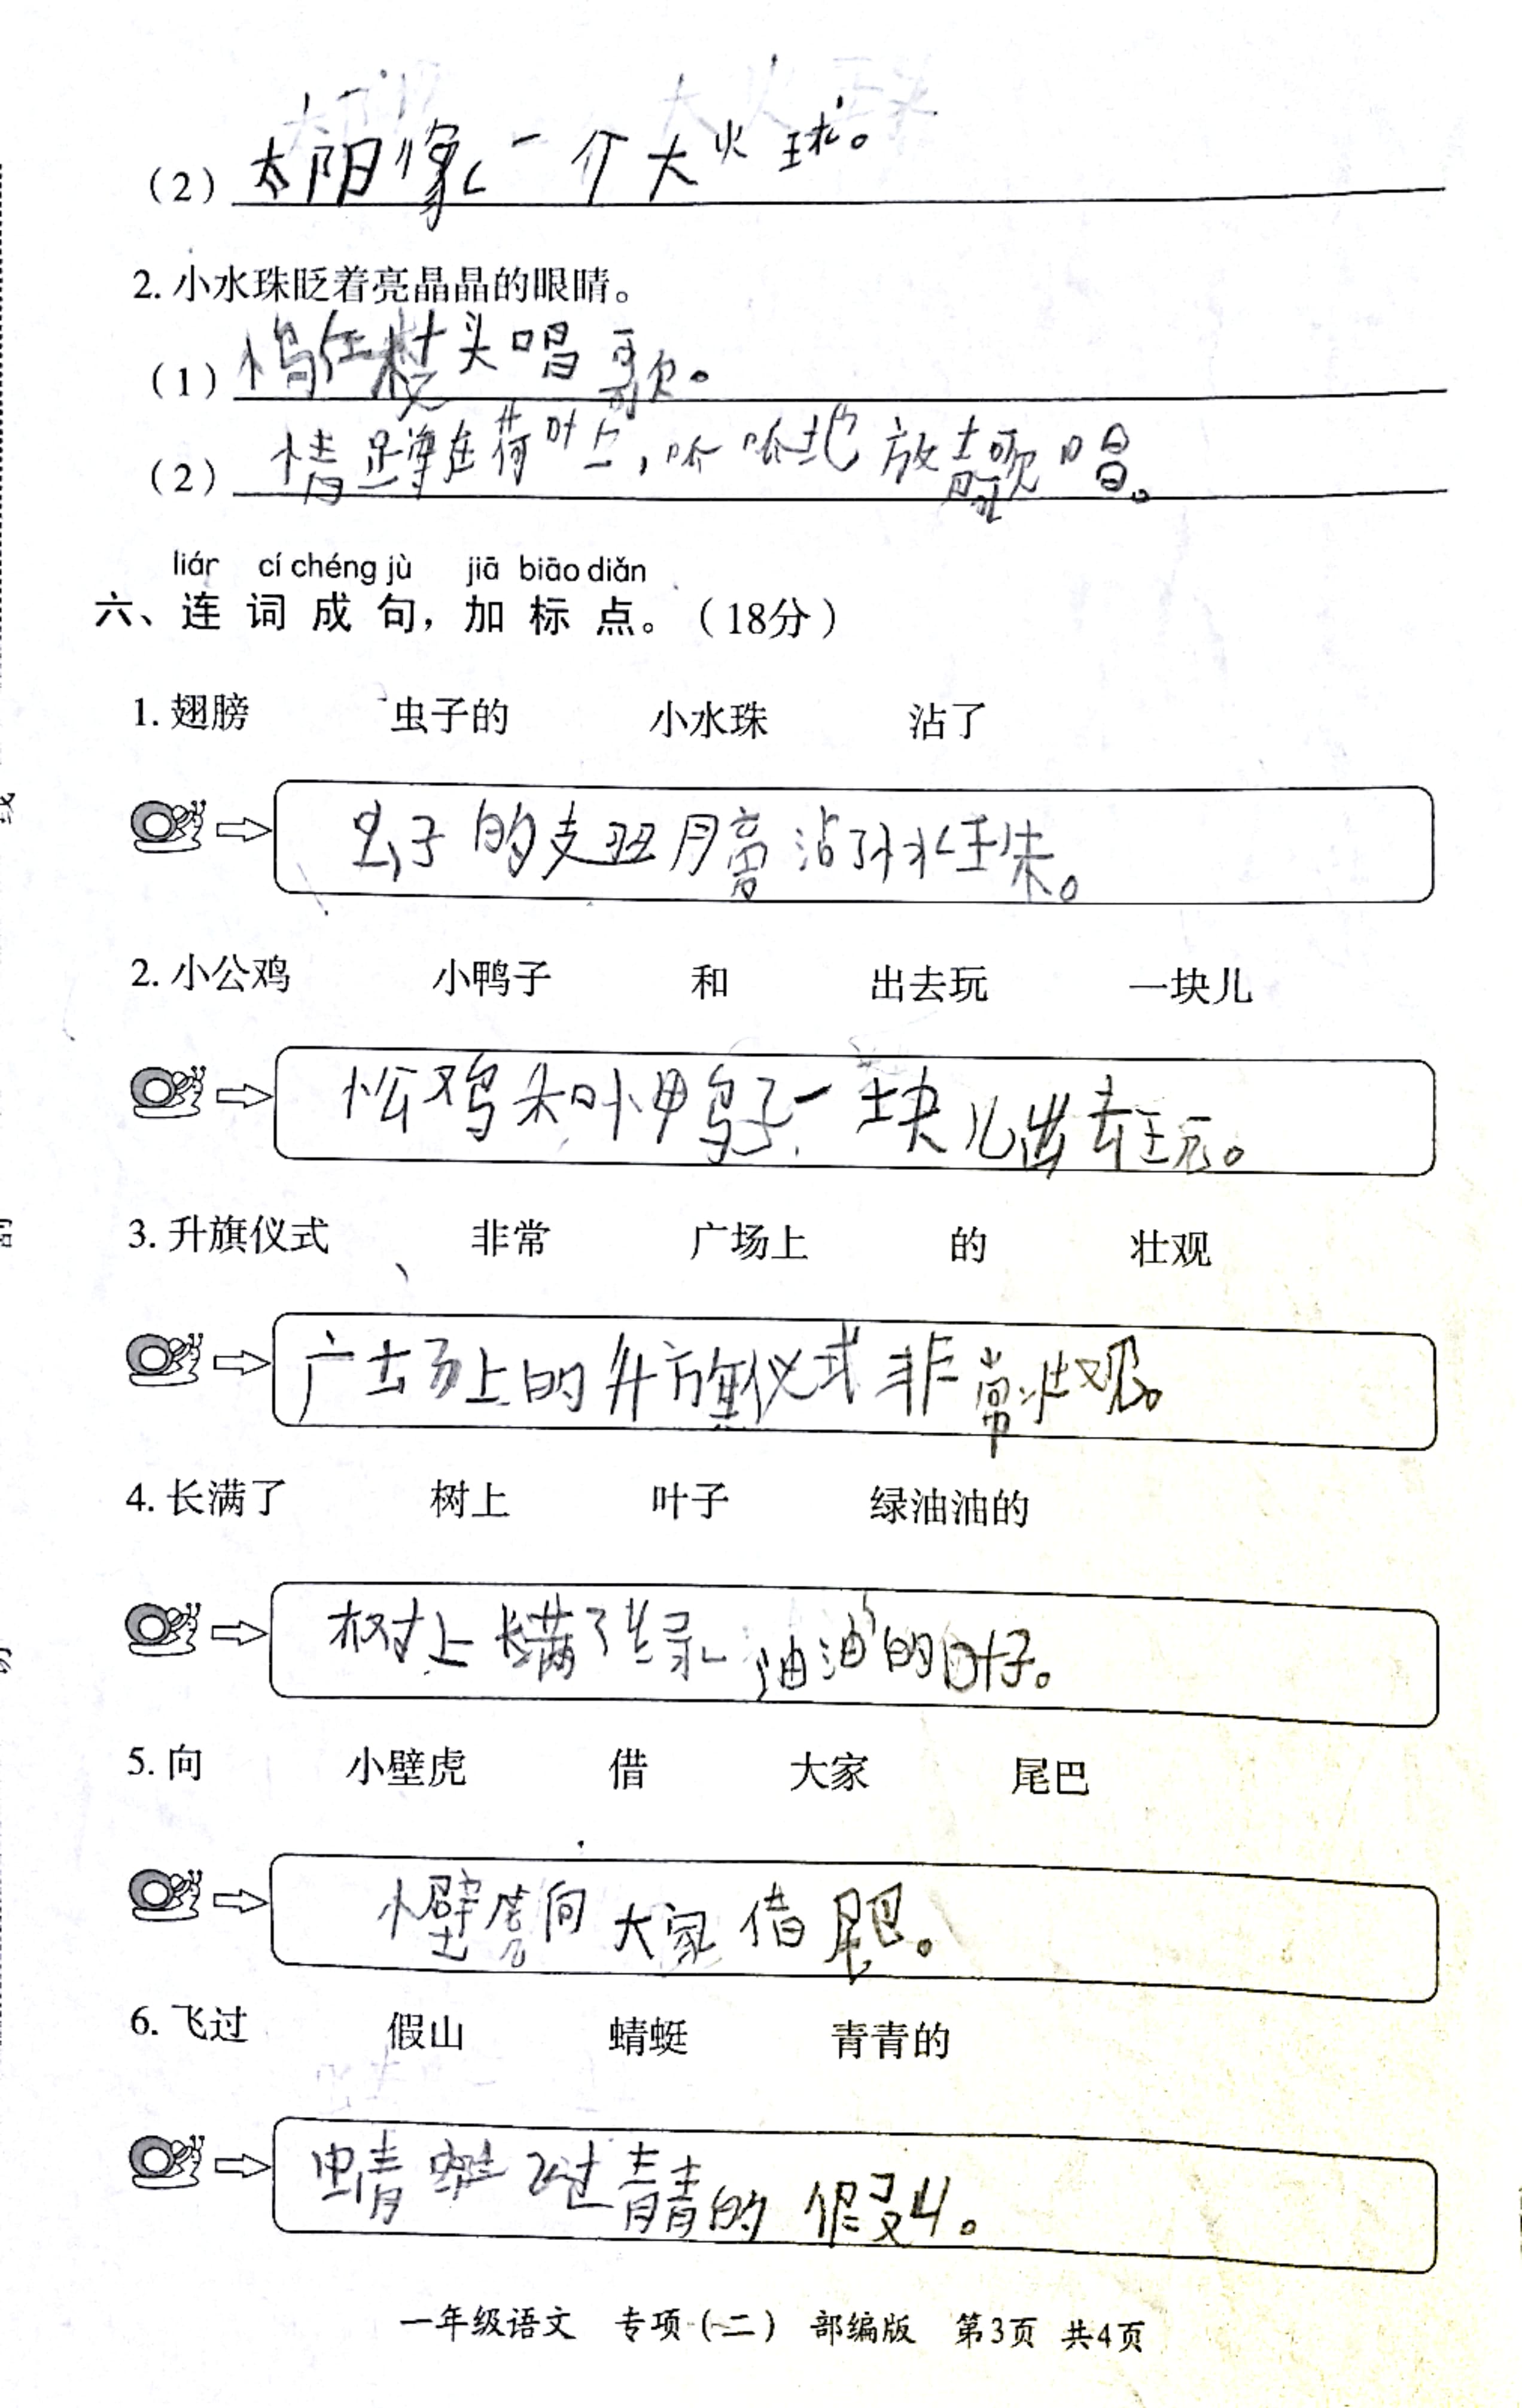 (2) 太阳像一个大火球。
2. 小水珠眨着亮晶晶的眼睛。
(1) 小鸟在枝头唱歌。
(2) 小青蛙蹲在荷叶上，呱呱地放声歌唱。
lián cí chéng jù jiā biāo diǎn
六、连词成句，加标点。（18分）
1. 翅膀 虫子的 小水珠 沾了
虫子的翅膀沾了小水珠。
2. 小公鸡 小鸭子 和 出去玩 一块儿
小公鸡和小鸭子一块儿出去玩。
3. 升旗仪式 非常 广场上 的 壮观
广场上的升旗仪式非常壮观。
4. 长满了 树上 叶子 绿油油的
树上长满了绿油油的叶子。
5. 向 小壁虎 借 大家 尾巴
小壁虎向大家借尾巴。
6. 飞过 假山 蜻蜓 青青的
蜻蜓飞过青青的假山。
一年级语文 专项（二） 部编版 第3页 共4页